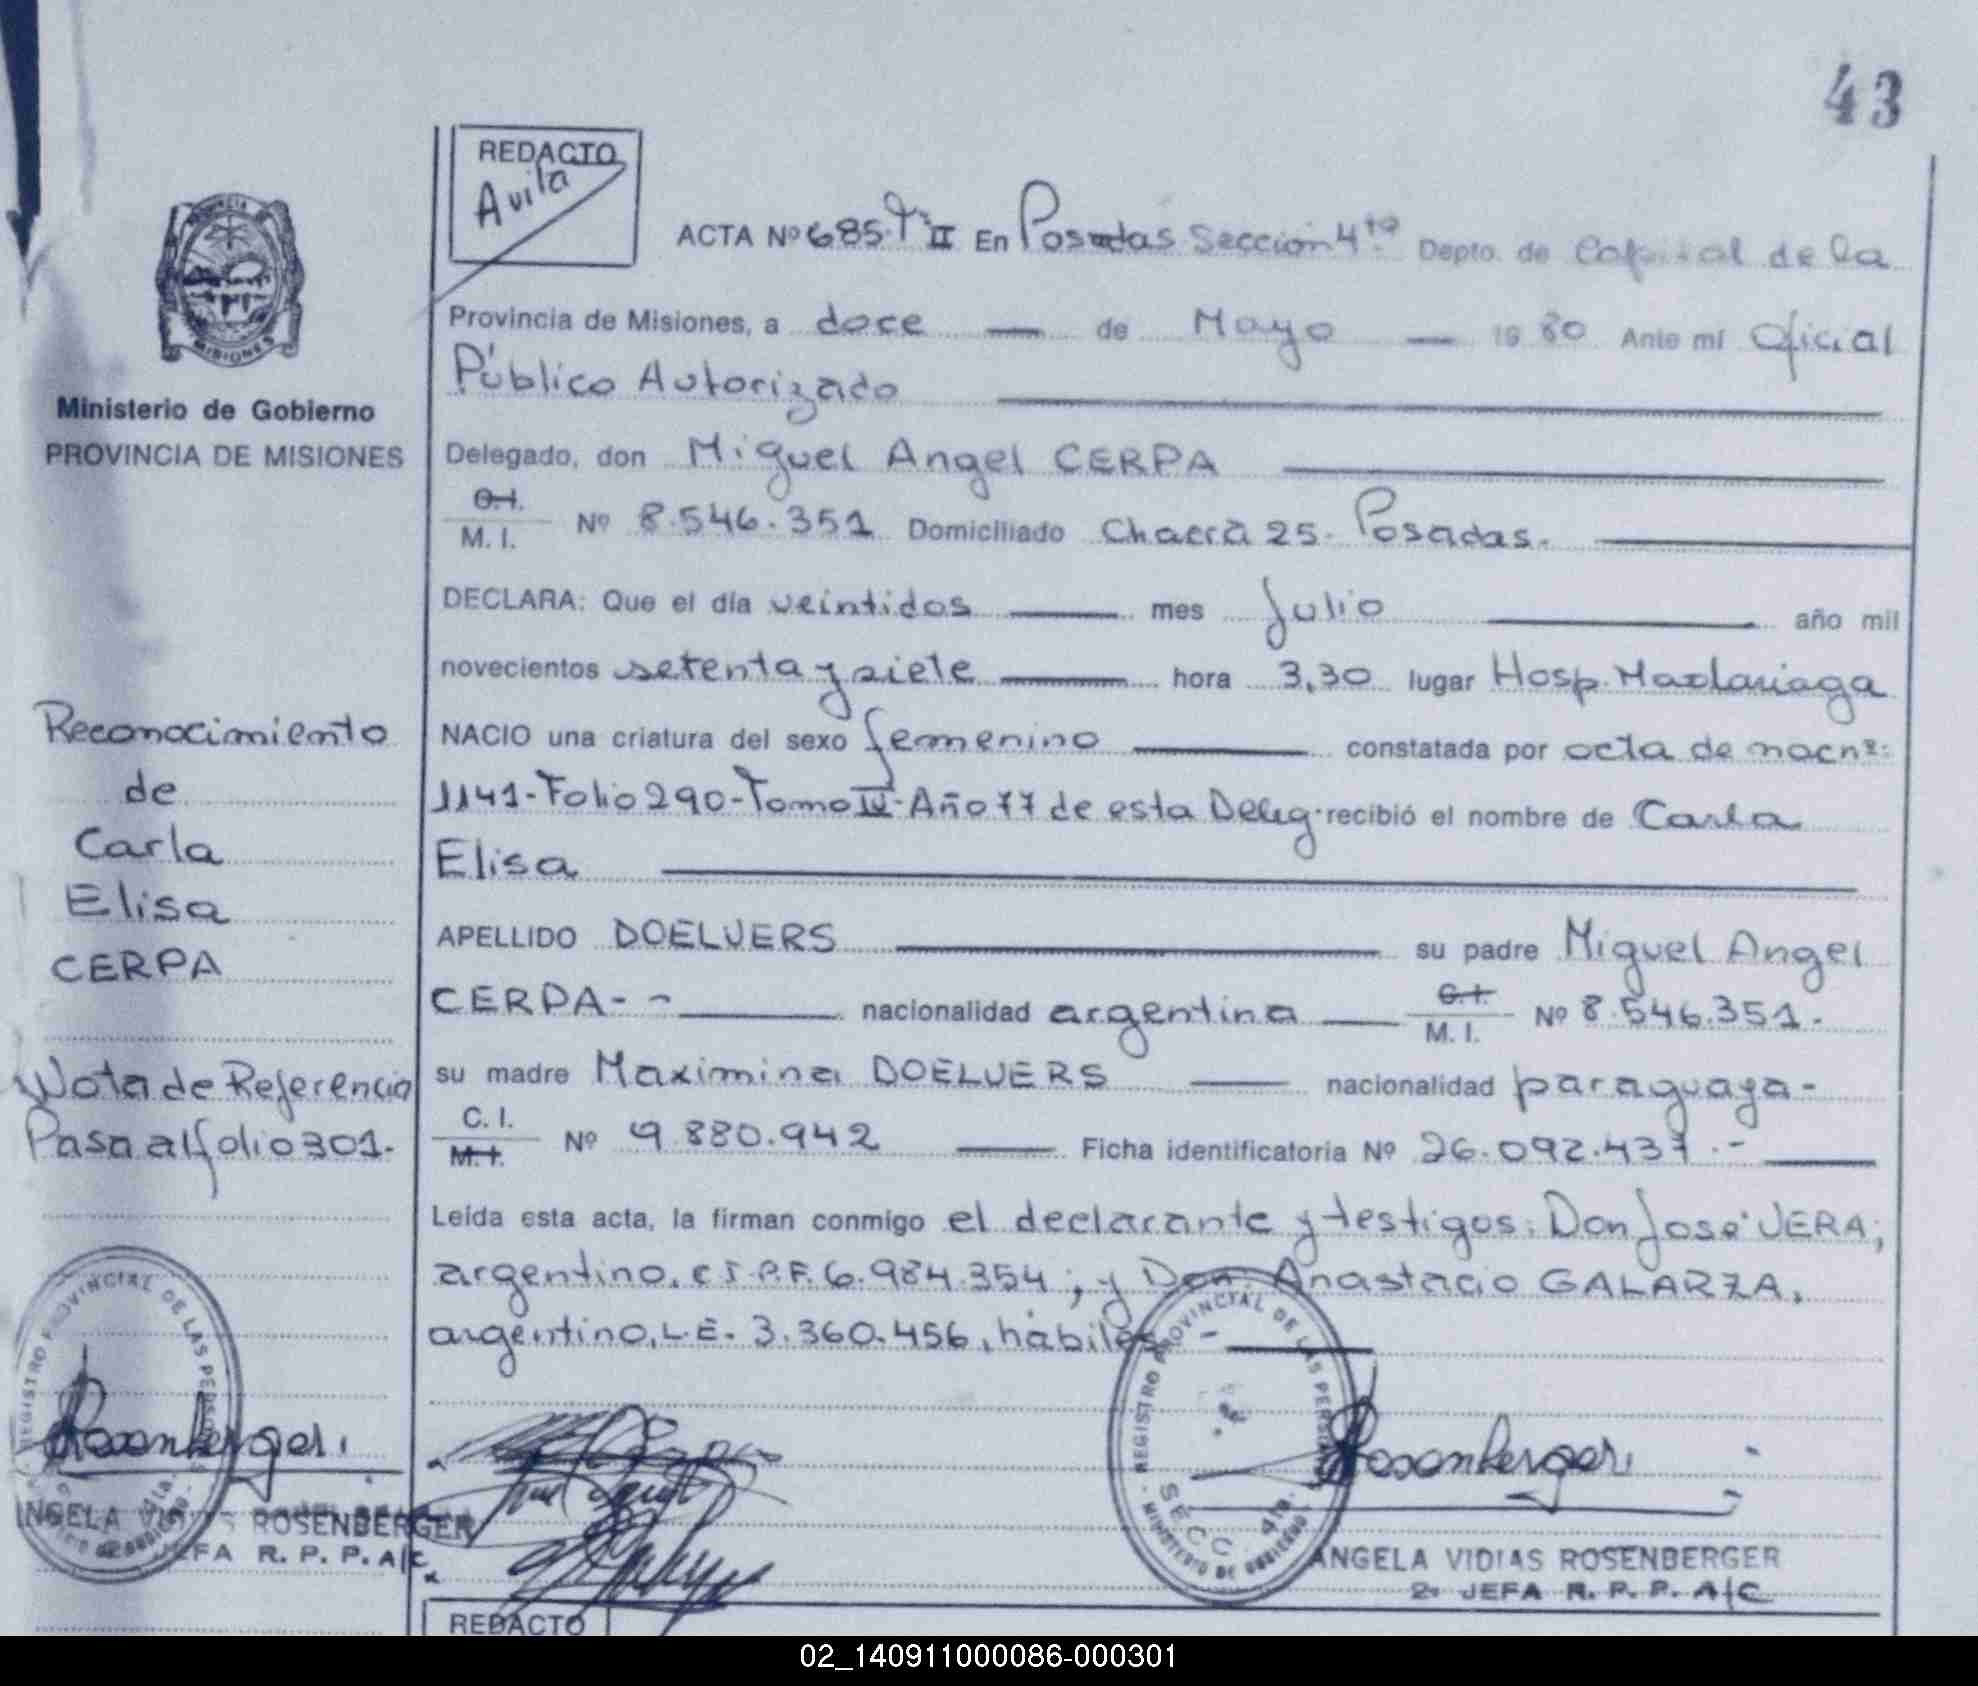 43
REDACTO
Avila
ACTA Nº 685. Tº II En Posadas Sección 4ta Depto. de Capital de la
Provincia de Misiones, a doce de Mayo 1980 Ante mí Oficial
Público Autorizado
Delegado, don Miguel Angel CERPA
C.I.
M. I. Nº 8.546.351 Domiciliado Chacra 25. Posadas.
DECLARA: Que el día veintidos mes Julio año mil
novecientos setenta y siete hora 3,30 lugar Hosp. Madariaga
NACIO una criatura del sexo femenino constatada por acta de nacnº:
1141-Folio 290-Tomo IV-Año 77 de esta Deleg. recibió el nombre de Carla
Elisa
APELLIDO DOELVERS su padre Miguel Angel
CERPA-- nacionalidad argentina C.I.
M. I. Nº 8.546.351.
su madre Maximina DOELVERS nacionalidad paraguaya-
C. I.
M.I. Nº 9.880.942 Ficha identificatoria Nº 26.092.437.-
Leída esta acta, la firman conmigo el declarante y testigos: Don José VERA,
argentino, C.I.P.F. 6.984.354; y Don Anastacio GALARZA,
argentino, L.E. 3.360.456, hábiles
PROVINCIA DE
MISIONES
Ministerio de Gobierno
PROVINCIA DE MISIONES
Reconocimiento
de
Carla
Elisa
CERPA
Nota de Referencia
Pasa al folio 301.
REGISTRO PROVINCIAL DE LAS PERSONAS
Rosenberger
ANGELA VIDIAS ROSENBERGER
JEFA R. P. P. A/C.
REGISTRO PROVINCIAL DE LAS PERSONAS
SECC. 4ta.
MINISTERIO DE GOBIERNO
Rosenberger
ANGELA VIDIAS ROSENBERGER
2. JEFA R. P. P. A/C
REDACTO
02_140911000086-000301